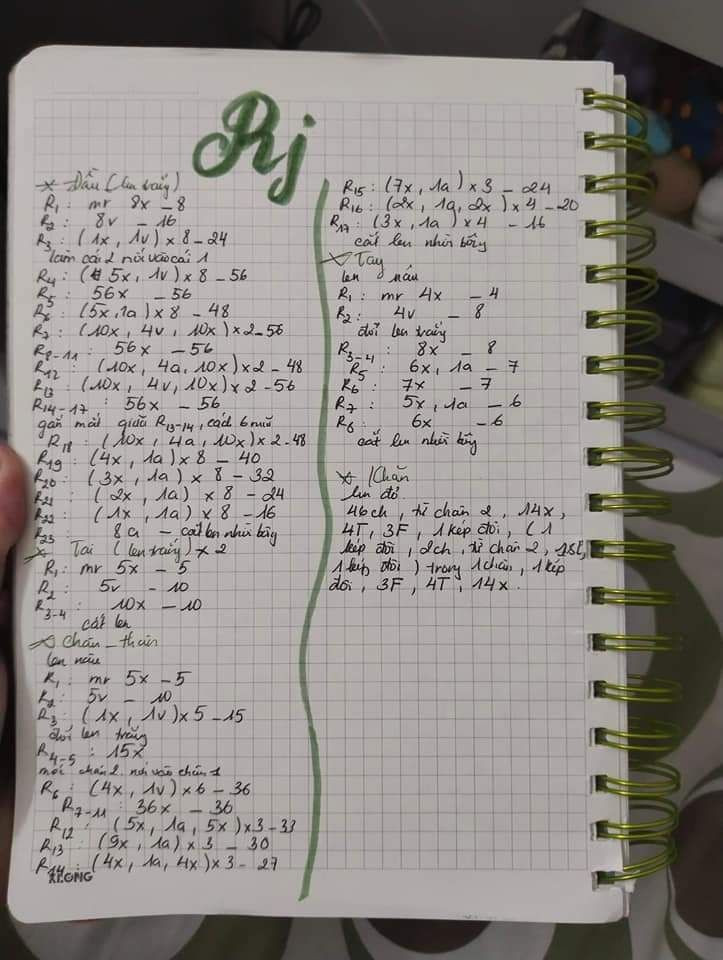 Rj
* Đầu (len trắng)
R1: mr 8x - 8
R2: 8v - 16
R3: (1x, 1v) x 8 - 24
làm cái 2 nối vào cái 1
R4: (5x, 1v) x 8 - 56
R5: 56x - 56
R6: (5x, 1a) x 8 - 48
R7: (10x, 4v, 10x) x 2 - 56
R8-11: 56x - 56
R12: (10x, 4a, 10x) x 2 - 48
R13: (10x, 4v, 10x) x 2 - 56
R14-17: 56x - 56
gắn mắt giữa R13-14, cách 6 mũi
R18: (10x, 4a, 10x) x 2 - 48
R19: (4x, 1a) x 8 - 40
R20: (3x, 1a) x 8 - 32
R21: (2x, 1a) x 8 - 24
R22: (1x, 1a) x 8 - 16
R23: 8a - cắt len nhồi bông
* Tai (len trắng) x 2
R1: mr 5x - 5
R2: 5v - 10
R3-4: 10x - 10
cắt len
* Chân - thân
len nâu
R1: mr 5x - 5
R2: 5v - 10
R3: (1x, 1v) x 5 - 15
đổi len trắng
R4-5: 15x
móc chân 2 nối vào chân 1
R6: (4x, 1v) x 6 - 36
R7-11: 36x - 36
R12: (5x, 1a, 5x) x 3 - 33
R13: (9x, 1a) x 3 - 30
R14: (4x, 1a, 4x) x 3 - 27
KLONG
R15: (7x, 1a) x 3 - 24
R16: (2x, 1a, 2x) x 4 - 20
R17: (3x, 1a) x 4 - 16
cắt len nhồi bông
* Tay
len nâu
R1: mr 4x - 4
R2: 4v - 8
đổi len trắng
R3-4: 8x - 8
R5: 6x, 1a - 7
R6: 7x - 7
R7: 5x, 1a - 6
R8: 6x - 6
cắt len nhồi bông
* Khăn
len đỏ
46ch, từ chân 2, 14x,
4T, 3F, 1 kép đôi, (1
kép đôi, 2ch, từ chân 2, 1sl,
1 kép đôi) trong 1 chân, 1 kép
đôi, 3F, 4T, 14x.